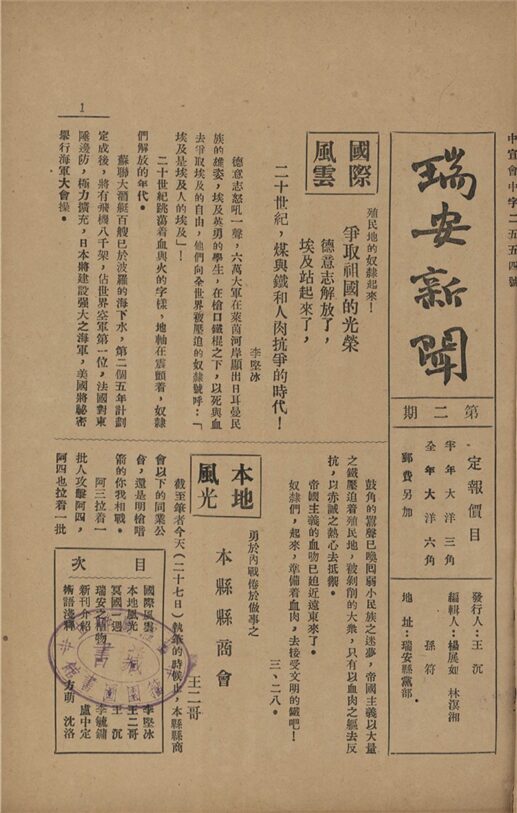 中宣會中字二五五四號
瑞安新聞
第二期
定報價目
半年大洋三角
全年大洋六角
郵費另加
發行人：王沉
編輯人：楊展如 林溟湘
孫符
地址：瑞安縣黨部
國際
風雲
殖民地的奴隸起來！
爭取祖國的光榮
德意志解放了，
埃及站起來了，
二十世紀，煤與鐵和人肉抗爭的時代！
李堅冰
德意志怒吼一聲，六萬大軍在萊茵河岸顯出日耳曼民
族的雄姿，埃及英勇的學生，在槍口鐵棍之下，以死與血
去爭取埃及的自由，他們向全世界被壓迫的奴隸號呼：「
埃及是埃及人的埃及」！
二十世紀跳蕩着血與火的字樣，地軸在震顫着，奴隸
們解放的年代。
蘇聯大潛艇百艘已於波羅的海下水，第二個五年計劃
定成後，將有飛機八千架，佔世界空軍第一位，法國對東
陲邊防，極力擴充，日本將建設强大之海軍，美國將秘密
舉行海軍大會操。
鼓角的囂聲已喚回弱小民族之迷夢，帝國主義以大量
之鐵壓迫着殖民地，被剝削的大衆，只有以血肉之軀去反
抗，以赤誠之熱心去抵禦。
帝國主義的血吻已迫近遠東來了。
奴隸們，起來，準備着血肉，去接受文明的鐵吧！
三、二八。
本地
風光
勇於內戰倦於做事之
本縣縣商會
王二哥
截至筆者今天（二十七日）執筆的時候止，本縣縣商
會以下的同業公
會，還是明槍暗
箭的你我相戰。
阿三拉着一
批人攻擊阿四，
阿四也拉着一批
目次
國際風雲 李堅冰
本地風光 王二哥
冥國一週 王沉
瑞安之植物 李毓鏞
新刊介紹 盧中定
術語淺釋 方萌 沈洛
1